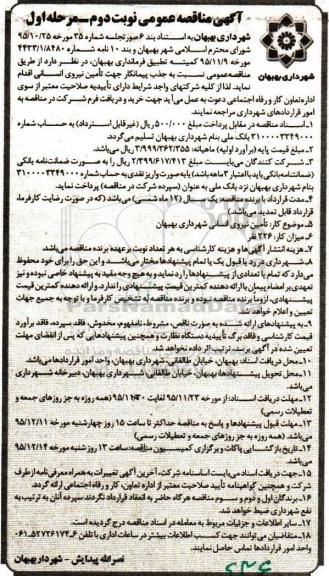 آگهی مناقصه عمومی نوبت دوم ـ مرحله اول
شهرداری بهبهان
شهرداری بهبهان به استناد بند ۶ صورتجلسه شماره ۳۵ مورخه ۹۵/۱۰/۲۵
شورای محترم اسلامی شهر بهبهان و بند ۱۰ نامه شماره ۴۴۳۳/۱۸۴۸۰
مورخه ۹۵/۱۱/۹ کمیته تطبیق فرمانداری بهبهان، در نظر دارد از طریق
مناقصه عمومی نسبت به جذب پیمانکار جهت تأمین نیروی انسانی اقدام
نماید. لذا از کلیه شرکتهای واجد شرایط دارای تأییدیه صلاحیت معتبر از سوی
اداره تعاون کار و رفاه اجتماعی دعوت به عمل می‌آید جهت خرید و دریافت فرم شرکت در مناقصه به
امور قراردادهای شهرداری مراجعه نمایند.
۱ـ اسناد مناقصه در مقابل پرداخت مبلغ ۵۰۰/۰۰۰ ریال (غیرقابل استرداد) به حساب شماره
۳۱۰۰۰۰۳۳۴۹۰۰۰ بانک ملی بنام شهرداری بهبهان تسلیم می‌گردد.
۲ـ مبلغ قیمت پایه (برآورد اولیه) ماهیانه: ۳/۹۹۹/۳۶۲/۳۵۵ ریال می‌باشد.
۳ـ شرکت کنندگان می‌بایست مبلغ ۲/۳۹۹/۶۱۷/۴۱۳ ریال را به صورت ضمانتنامه بانکی
(ضمانتنامه بانکی باید با اعتبار ۳ ماهه باشد) یا به صورت واریز نقدی به حساب شماره ۳۱۰۰۰۰۳۳۴۹۰۰۰
بنام شهرداری بهبهان نزد بانک ملی به عنوان (سپرده شرکت در مناقصه) پرداخت نماید.
۴ـ مدت قرارداد با برنده مناقصه یک سال (۱۲ ماه شمسی) می‌باشد (که در صورت رضایت کارفرما،
قرارداد قابل تمدید می‌باشد)
۵ـ موضوع کار: تأمین نیروی انسانی شهرداری بهبهان
۶ـ میزان کار: ۲۲۶ نفر
۷ـ هزینه انتشار آگهی‌ها و هزینه کارشناسی به هر تعداد نوبت برعهده برنده مناقصه می‌باشد.
۸ـ شهرداری در رد یا قبول یک یا تمام پیشنهادها مختار می‌باشد و این حق را برای خود محفوظ
می‌دارد که تمام یا تعدادی از پیشنهادها را رد نماید و به هیچ وجه مقید به پیشنهاد خاصی نبوده و نیز
تعهدی بر امضاء پیمان با ارائه دهنده کمترین قیمت پیشنهادی را ندارد، و ارائه دهنده کمترین قیمت
پیشنهادی، لزوما برنده مناقصه نبوده و برنده مناقصه به تشخیص کارفرما و با توجه به جمیع جهات
تعیین و اعلام خواهد شد.
۹ـ به پیشنهادهای ارائه شده به صورت ناقص، مشروط، نامفهوم، مخدوش، فاقد سپرده، فاقد برآورد
قیمت کارشناسی و فاقد برگ تأییدیه دستگاه نظارت و همچنین پیشنهادهایی که پس از انقضای مهلت
تعیین شده در آگهی برسد، ترتیب اثر داده نخواهد شد.
۱۰ـ محل دریافت اسناد: بهبهان، خیابان طالقانی، شهرداری بهبهان، واحد امور قراردادها می‌باشد.
۱۱ـ محل تحویل پیشنهادها: بهبهان، خیابان طالقانی، شهرداری بهبهان، دبیرخانه شهرداری
می‌باشد.
۱۲ـ مهلت دریافت اسناد: از مورخه ۹۵/۱۱/۲۳ لغایت ۹۵/۱۱/۳۰ (همه روزه به جز روزهای جمعه و
تعطیلات رسمی)
۱۳ـ مهلت قبول پیشنهادها و پاسخ به مناقصه حداکثر تا ساعت ۱۵ روز چهارشنبه مورخه ۹۵/۱۲/۱۱
می‌باشد. (همه روزه به جز روزهای جمعه و تعطیلات رسمی)
۱۴ـ تاریخ بازگشایی پاکات و برگزاری کمیسیون مناقصه: ساعت ۱۳ روز شنبه مورخه ۹۵/۱۲/۱۴
می‌باشد.
۱۵ـ جهت دریافت اسناد می‌بایست اساسنامه شرکت، آخرین آگهی تغییرات به همراه معرفی نامه از طرف
شرکت و همچنین گواهینامه تأیید صلاحیت معتبر از اداره تعاون، کار و رفاه اجتماعی ارائه گردد.
۱۶ـ برندگان اول و دوم و سوم مناقصه هرگاه حاضر به انعقاد قرارداد نگردند سپرده آنان به ترتیب به
نفع شهرداری ضبط خواهد شد.
۱۷ـ سایر اطلاعات و جزئیات مربوط به معامله در اسناد مناقصه درج گردیده است.
۱۸ـ متقاضیان می‌توانند جهت کسب اطلاعات بیشتر در ساعات اداری با تلفن ۵۲۷۲۶۱۷۴ـ۰۶۱
واحد امور قراردادها تماس حاصل نمایند.
نصرالله پیدایش ـ شهردار بهبهان